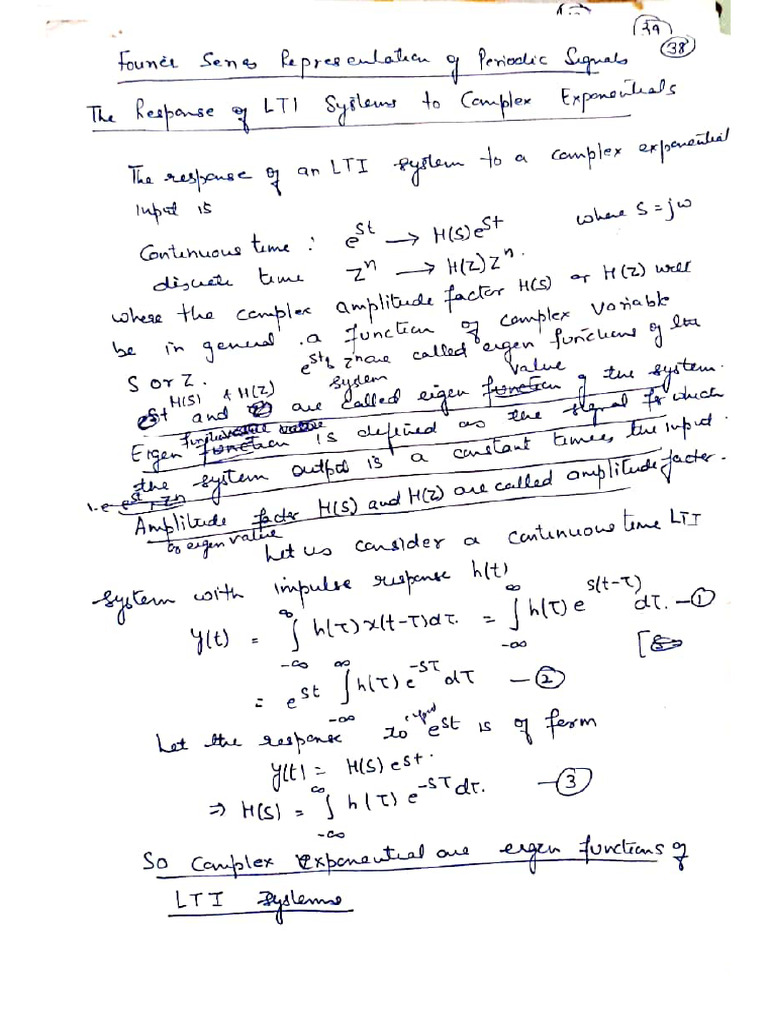 39
38
Fourier Series Representation of Periodic Signals
The Response of LTI Systems to Complex Exponentials
The response of an LTI system to a complex exponential
input is
Continuous time : e^{st} → H(s)e^{st} where s = jω
discrete time z^n → H(z)z^n.
where the complex amplitude factor H(s) or H(z) will
be in general a function of complex variable
s or z. e^{st} & z^n are called eigen functions of the
system
H(s) & H(z) value
st and are called eigen function of the system.
Eigen function is defined as the signal for which
the system output is a constant times the input.
i.e e^{st}, z^n
Amplitude factor H(s) and H(z) are called amplitude factor.
or eigen value
Let us consider a continuous time LTI
system with impulse response h(t)
y(t) = ∫_{-∞}^{∞} h(τ)x(t-τ)dτ. = ∫_{-∞}^{∞} h(τ)e^{s(t-τ)} dτ. —①
= e^{st} ∫_{-∞}^{∞} h(τ)e^{-sτ} dτ —②
Let the response to input e^{st} is of form
y(t) = H(s)e^{st}.
⇒ H(s) = ∫_{-∞}^{∞} h(τ)e^{-sτ}dτ. —③
So Complex exponential are eigen functions of
LTI Systems